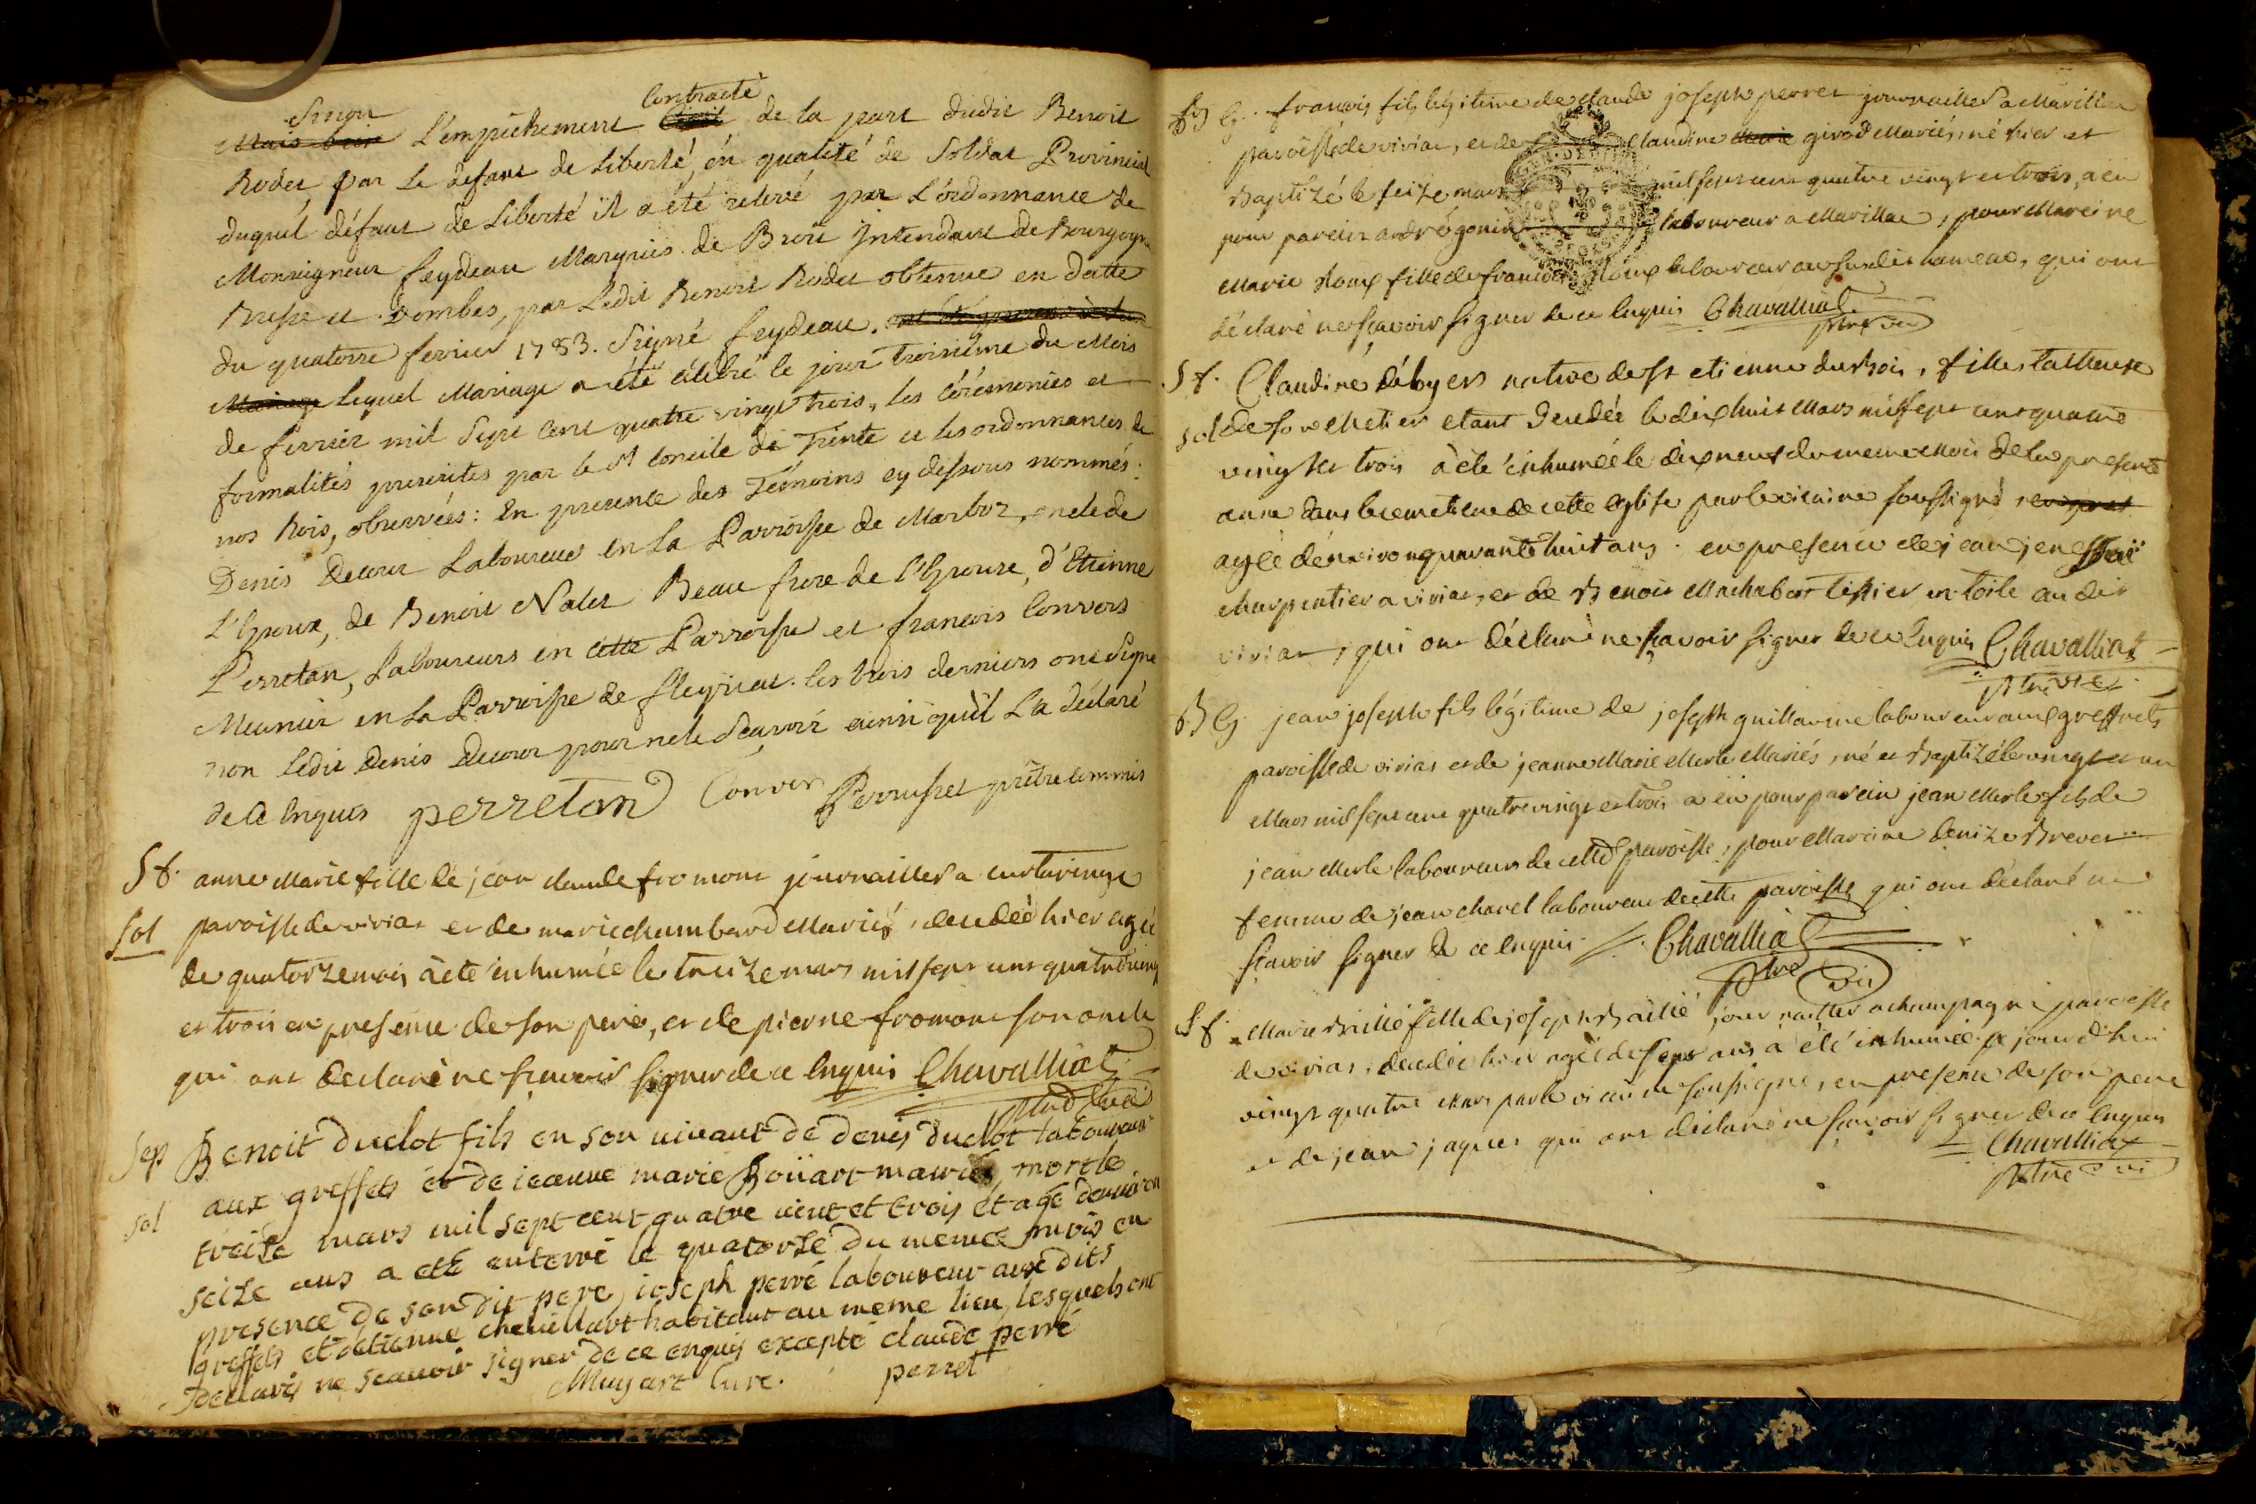 Sinon contracté
Mais bien L'empêchement Civil de la part dudit Benoit
Rodet, par le defaut de Liberté, én qualité de Soldat Provincial
duquel défaut de Liberté il a été relevé par L'ordonnance de
Monseigneur feydeau Marquis de Brou Intendant de Bourgogne
Bresse et Dombes, par Ledit Benoit Rodet obtenue en datte
du quatorze fevrier 1783. Signé feydeau.
Mariage lequel Mariage a été célébré le jour troisième du Mois
de fevrier mil Sept Cent quatre vingt trois, les cérémonies et
formalités prescrites par le St Concile de Trente et les ordonnances de
nos Rois, observées: En presence des Témoins cy dessous nommés:
Denis Decour Laboureur en la Parroisse de Marboz, oncle de
L'Epoux, de Benoit Nalet Beau frere de l'Epouse, d'Etienne
Perretan, Laboureurs en cette Parroisse et francois Convers
Meunier en la Parroisse de fleyriat. les trois derniers ont signé
non ledit Denis Decour pour ne le Sçavoir ainsi qu'il L'a déclaré
de ce Enquis perretan Conver Perruset prêtre commis
S f. anne Marie fille de jean claude fromont journaillier a curtaringe
Sol paroisse de viriat et de marie chambard Mariés, décédée hier agée
de quatorze mois à été inhumée le treize mars mil sept cent quatrevingt
et trois en presence de son pere, et de pierre fromont son oncle
qui ont déclaré ne sçavoir signer de ce Enquis Chavalliat
Sep Benoit duclot fils en son vivant de denis duclot laboureur
sol aux greffets et de jeanne marie Boüart mariés, mort le
treise mars mil sept cent quatre vint et trois et agé denviron
seize ans a eté enterré le quatorse du meme mois en
presence de son dit pere, ioseph perré laboureur aux dits
greffets et detienne chevillart habitant au meme lieu lesquels ont
declarés ne scauoir signer de ce enquis excepté claude perré
Muyart Curé. perret
B G. francois fils légitime de claude joseph perret journaillier a Marillat
paroisse de viriat, et de Claudine Marie girod Mariés, né hier et
Baptizé le seize mars mil sept cent quatre vingt et trois, a eu
pour parein andré gonin laboureur a Marillac, pour Mareine
Marie Loup fille de francois Loup laboureur au susdit hameau, qui ont
déclaré ne sçavoir signer de ce Enquis Chavalliat
ptre vic
S f. Claudine déboyers native de st etienne du bois, fille tailleuse
sol de son Metier etant Decedée le dix huit Mars mil sept cent quatre
vingt et trois à été inhumée le dix neuf du meme mois de la presente
anne dans le cemetiere de cette Eglise par le vicaire soussigné
agée d'environ quarante huit ans. en presence de jean
charpentier a viriat, et de Benoit Machabert tissier en toile au dit
viriat, qui ont déclaré ne sçavoir signer de ce Enquis Chavalliat
ptre vic
B G jean joseph fils légitime de joseph guillermine laboureur aux greffets
paroisse de viriat et de jeanne Marie Merle Mariés, né et Baptizé le vingt et un
Mars mil sept cent quatre vingt et trois a eü pour parein jean Merle fils de
jean Merle laboureur de cette paroisse, pour Mareine Denize Brevet
femme de jean charel laboureur de cette paroisse qui ont déclaré ne
sçavoir signer de ce Enquis. Chavalliat
ptre vic
S f. Marie Baillié fille de joseph Baillié journaillier a champagne paroisse
de viriat, decedée hier agée de sept ans a été inhumée ce jourd'hui
vingt quatre Mars par le vicaire soussigné, en presence de son pere
et de jean jaques qui ont déclaré ne sçavoir signer de ce Enquis
Chavalliat
Ptre vi